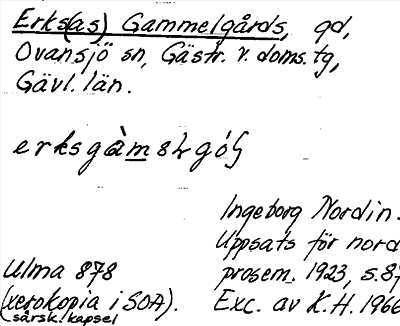 Erks(as) Gammelgårds, gd,
Ovansjö sn, Gästr. v. doms. tg,
Gävl. län.
erksgàm
Ingeborg Nordin.
Uppsats för nord
Ulma 878
prosem. 1923, s. 87
(xerokopia i SOA).
Exc. av K.H. 1966
särsk. kapsel